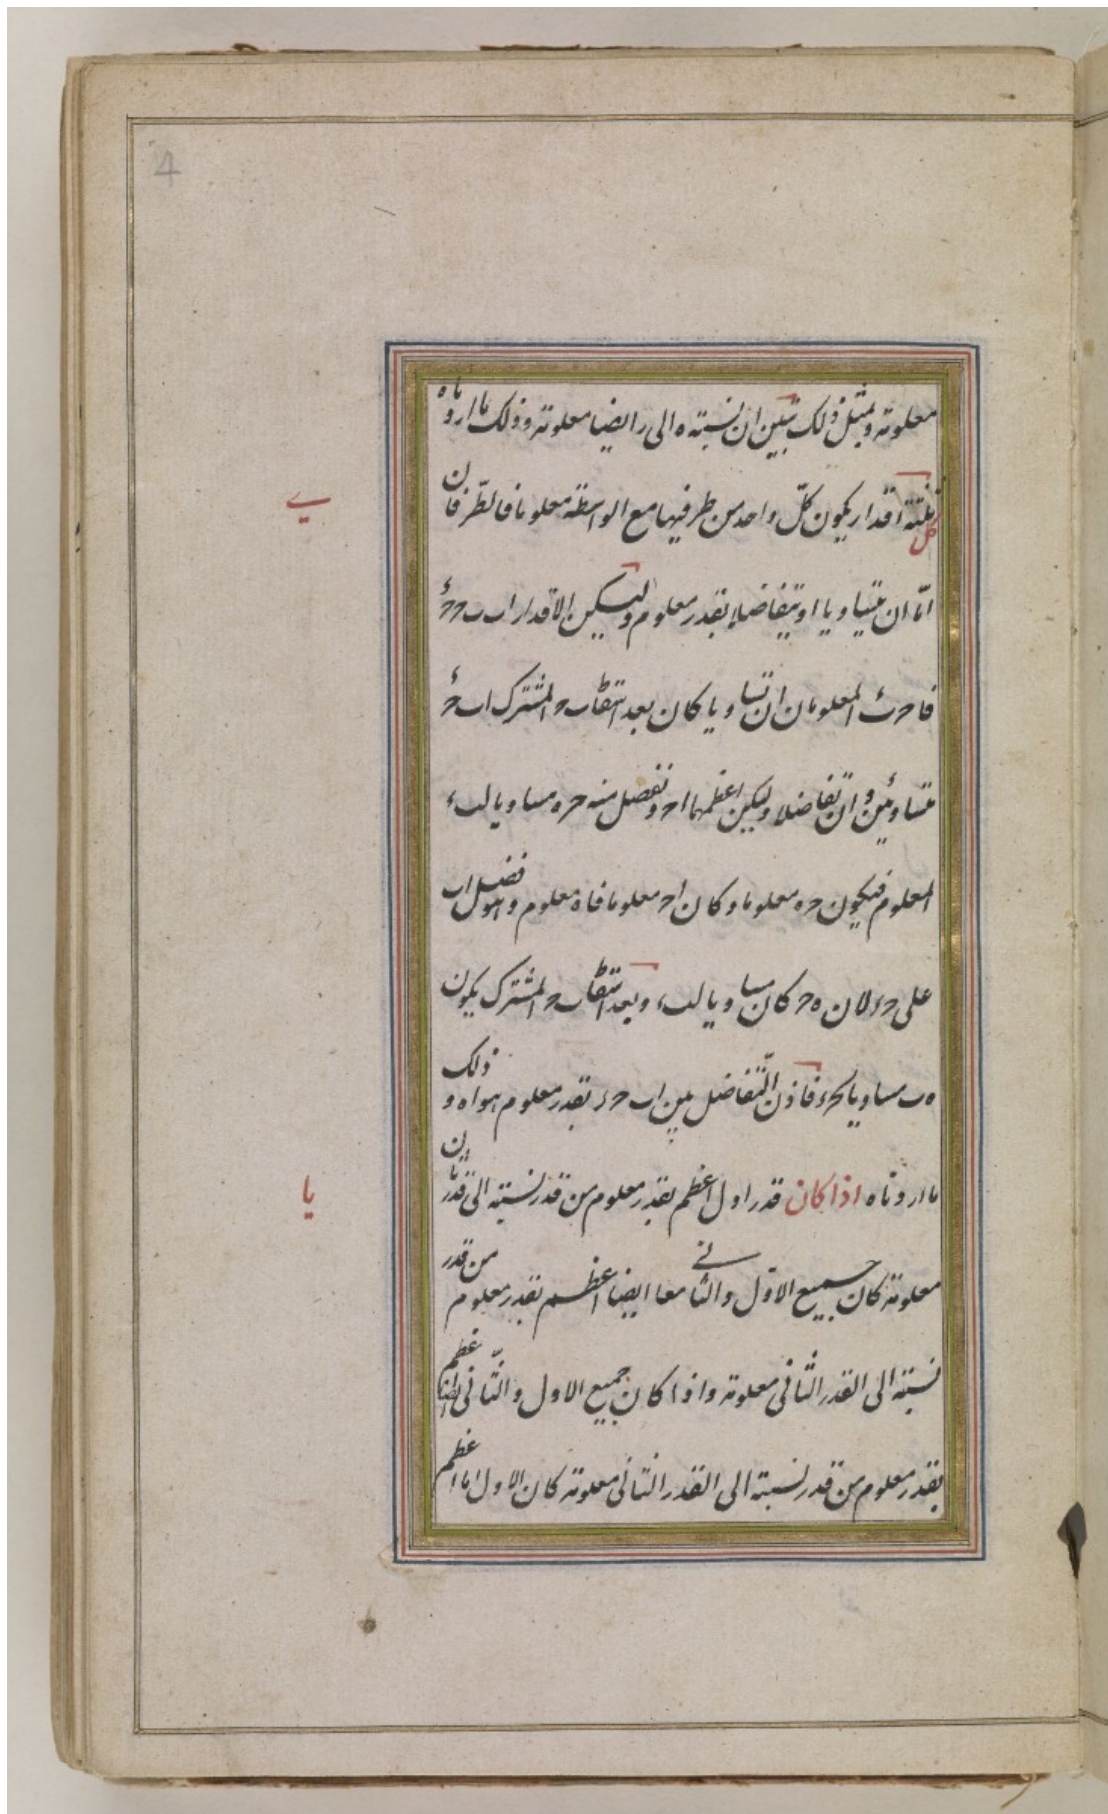 4
معلومة وبمثل ذلك تبين ان نسبة ه الى ر ايضا معلومة وذلك ما اردناه
كل ثلثة اقدار يكون كلّ واحد من طرفيها مع الواسطة معلوما فالطّرفان
ى
امّا ان يتساويا او يتفاضلا بقدر معلوم وليكن الاقدار اب ب ح حء
فاح بء المعلومان ان تساويا كان بعد اسقاط ب ح المشترك اب حء
متساويين وان تفاضلا وليكن اعظمهما اح ونفصل منه ح ه مساويا لبء
المعلوم فيكون ح ه معلوما وكان اح معلوما فاه معلوم وهو فضل اب
على حء لان ه ح كان مساويا لبء وبعد اسقاط ب ح المشترك يكون
ه ب مساويا لحء فاذن التّفاضل بين اب حء بقدر معلوم هو اه وذلك
ما اردناه اذا كان قدر اول اعظم بقدر معلوم من قدر نسبته الى قدر ثان
يا
معلومة كان جميع الاوّل والثانى معا ايضا اعظم بقدر معلوم من قدر
نسبته الى القدر الثانى معلومة واذا كان جميع الاول والثّانى ايضا اعظم
بقدر معلوم من قدر نسبته الى القدر الثانى معلومة كان الاول اما اعظم